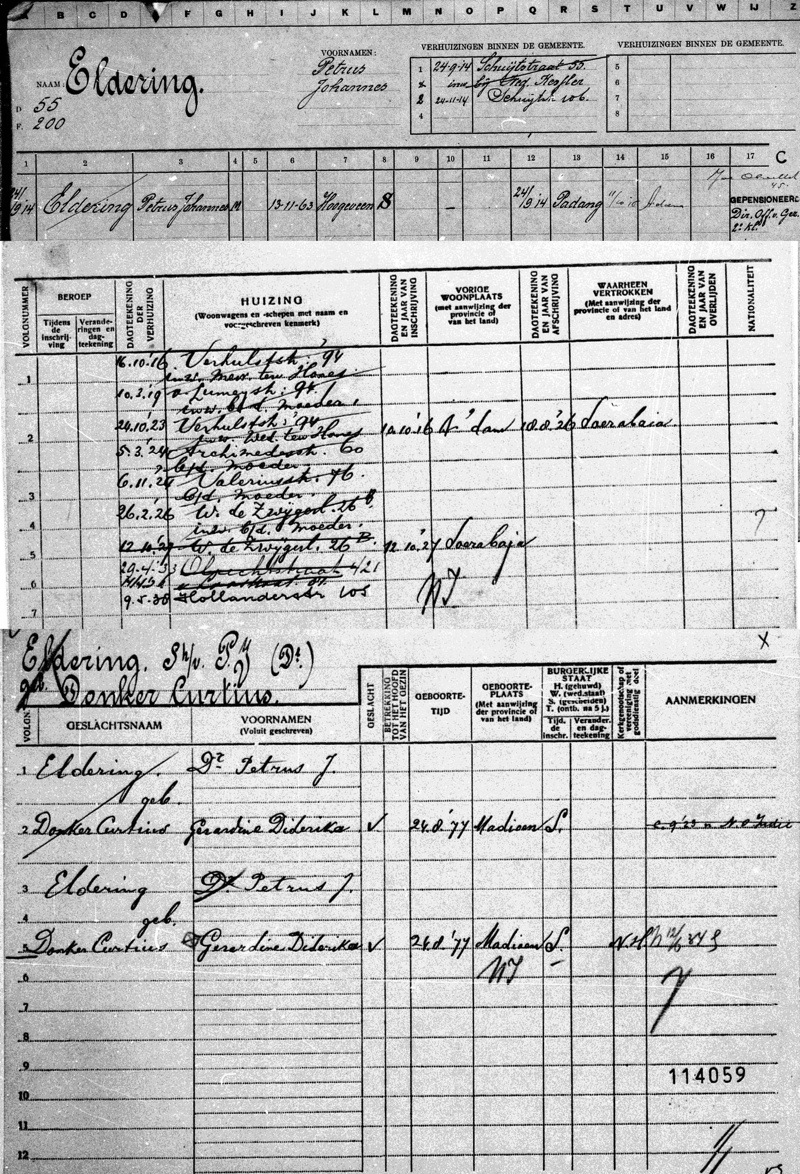 A B C D E F G H I J K L M N O P Q R S T U V W IJ Z
NAAM: Eldering.
D 55
F. 200
VOORNAMEN:
Petrus
Johannes
VERHUIZINGEN BINNEN DE GEMEENTE.
1 24-9-14 Schuijtstraat 55.
inw. bij
2 24-11-14 Schuijtstr 106.
4
VERHUIZINGEN BINNEN DE GEMEENTE.
5
6
7
8
1 2 3 4 5 6 7 8 9 10 11 12 13 14 15 16 17 C
24/9 14 Eldering Petrus Johannes M 13-11-63 Hoogeveen S — 24/9 14 Padang
GEPENSIONEERD
Dir. Off. v. Gez.
2e kl.
VOLGNUMMER
BEROEP
Tijdens de inschrijving
Veranderingen en dagteekening
DAGTEEKENING DER VERHUIZING
HUIZING
(Woonwagens en -schepen met naam en voorgeschreven kenmerk)
DAGTEEKENING EN JAAR VAN INSCHRIJVING
VORIGE WOONPLAATS
(met aanwijzing der provincie of van het land)
DAGTEEKENING EN JAAR VAN AFSCHRIJVING
WAARHEEN VERTROKKEN
(Met aanwijzing der provincie of van het land en adres)
DAGTEEKENING EN JAAR VAN OVERLIJDEN
NATIONALITEIT
1 2 3 10 11 12 13 14 15 16 17
16.10.'16 Verhulststr. 94
1 inw. Mevr. ten Hoves
10.3.'19 v. Lumeystr. 94.
inw. b/d. moeder
24.10.'23 Verhulststr. '94
2 inw. Wed. ten Hoves 10.10.'16 A'dam 18.8.'26 Soerabaia
5.3.'24 Archimedesstr. 60
b/d. moeder
6.11.'24 Valeriusstr. 46.
3 b/d. moeder.
26.2.'26 W. de Zwijgerl. 26 B
4 inw. b/d. moeder. ?
12.10.'27 W. de Zwijgerl. 26 B. 12.10.'27 Soerabaja
5
29.4.'33 Obrechtstraat 421
6 NI
9.5.38 Hollanderstr 105
7
Eldering. Sh/v. P. J. (Dr.) X
geb. Donker Curtius.
VOLGN.
GESLACHTSNAAM
VOORNAMEN
(Voluit geschreven)
GESLACHT
BETREKKING TOT HET HOOFD VAN HET GEZIN
GEBOORTE-TIJD
GEBOORTE-PLAATS
(Met aanwijzing der provincie of van het land)
BURGERLIJKE STAAT
H. (gehuwd)
W. (werd. staat)
S. (gescheiden)
T. (ontb. na 5 j.)
Tijd. de inschr.
Verander. en dagteekening
Kerkgenootschap of vereeniging met godsdienstig doel
AANMERKINGEN
1 Eldering. Dr. Petrus J.
geb.
2 Donker Curtius Gerardine Diderika V. 24.8.'77 Madioen S.
3 Eldering Dr. Petrus J.
4 geb.
5 Donker Curtius Gerardine Diderika V 24.8.'77 Madioen S. N.H.
6 NI
7
8
9
114059
10
11
12